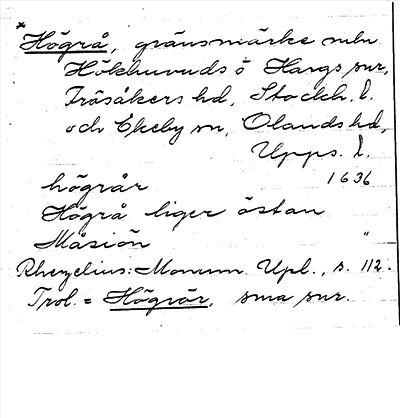 *Högrå, gränsmärke mln
Hökhuvuds o Hargs snr,
Frösåkers hd, Stockh. l.
och Ekeby sn, Olands hd,
Upps. l.
högrår 1636
Högrå liger östan
Måsiön "
Rhezelius: Monum. Upl., s. 112.
Trol. = Högrör, sma snr.